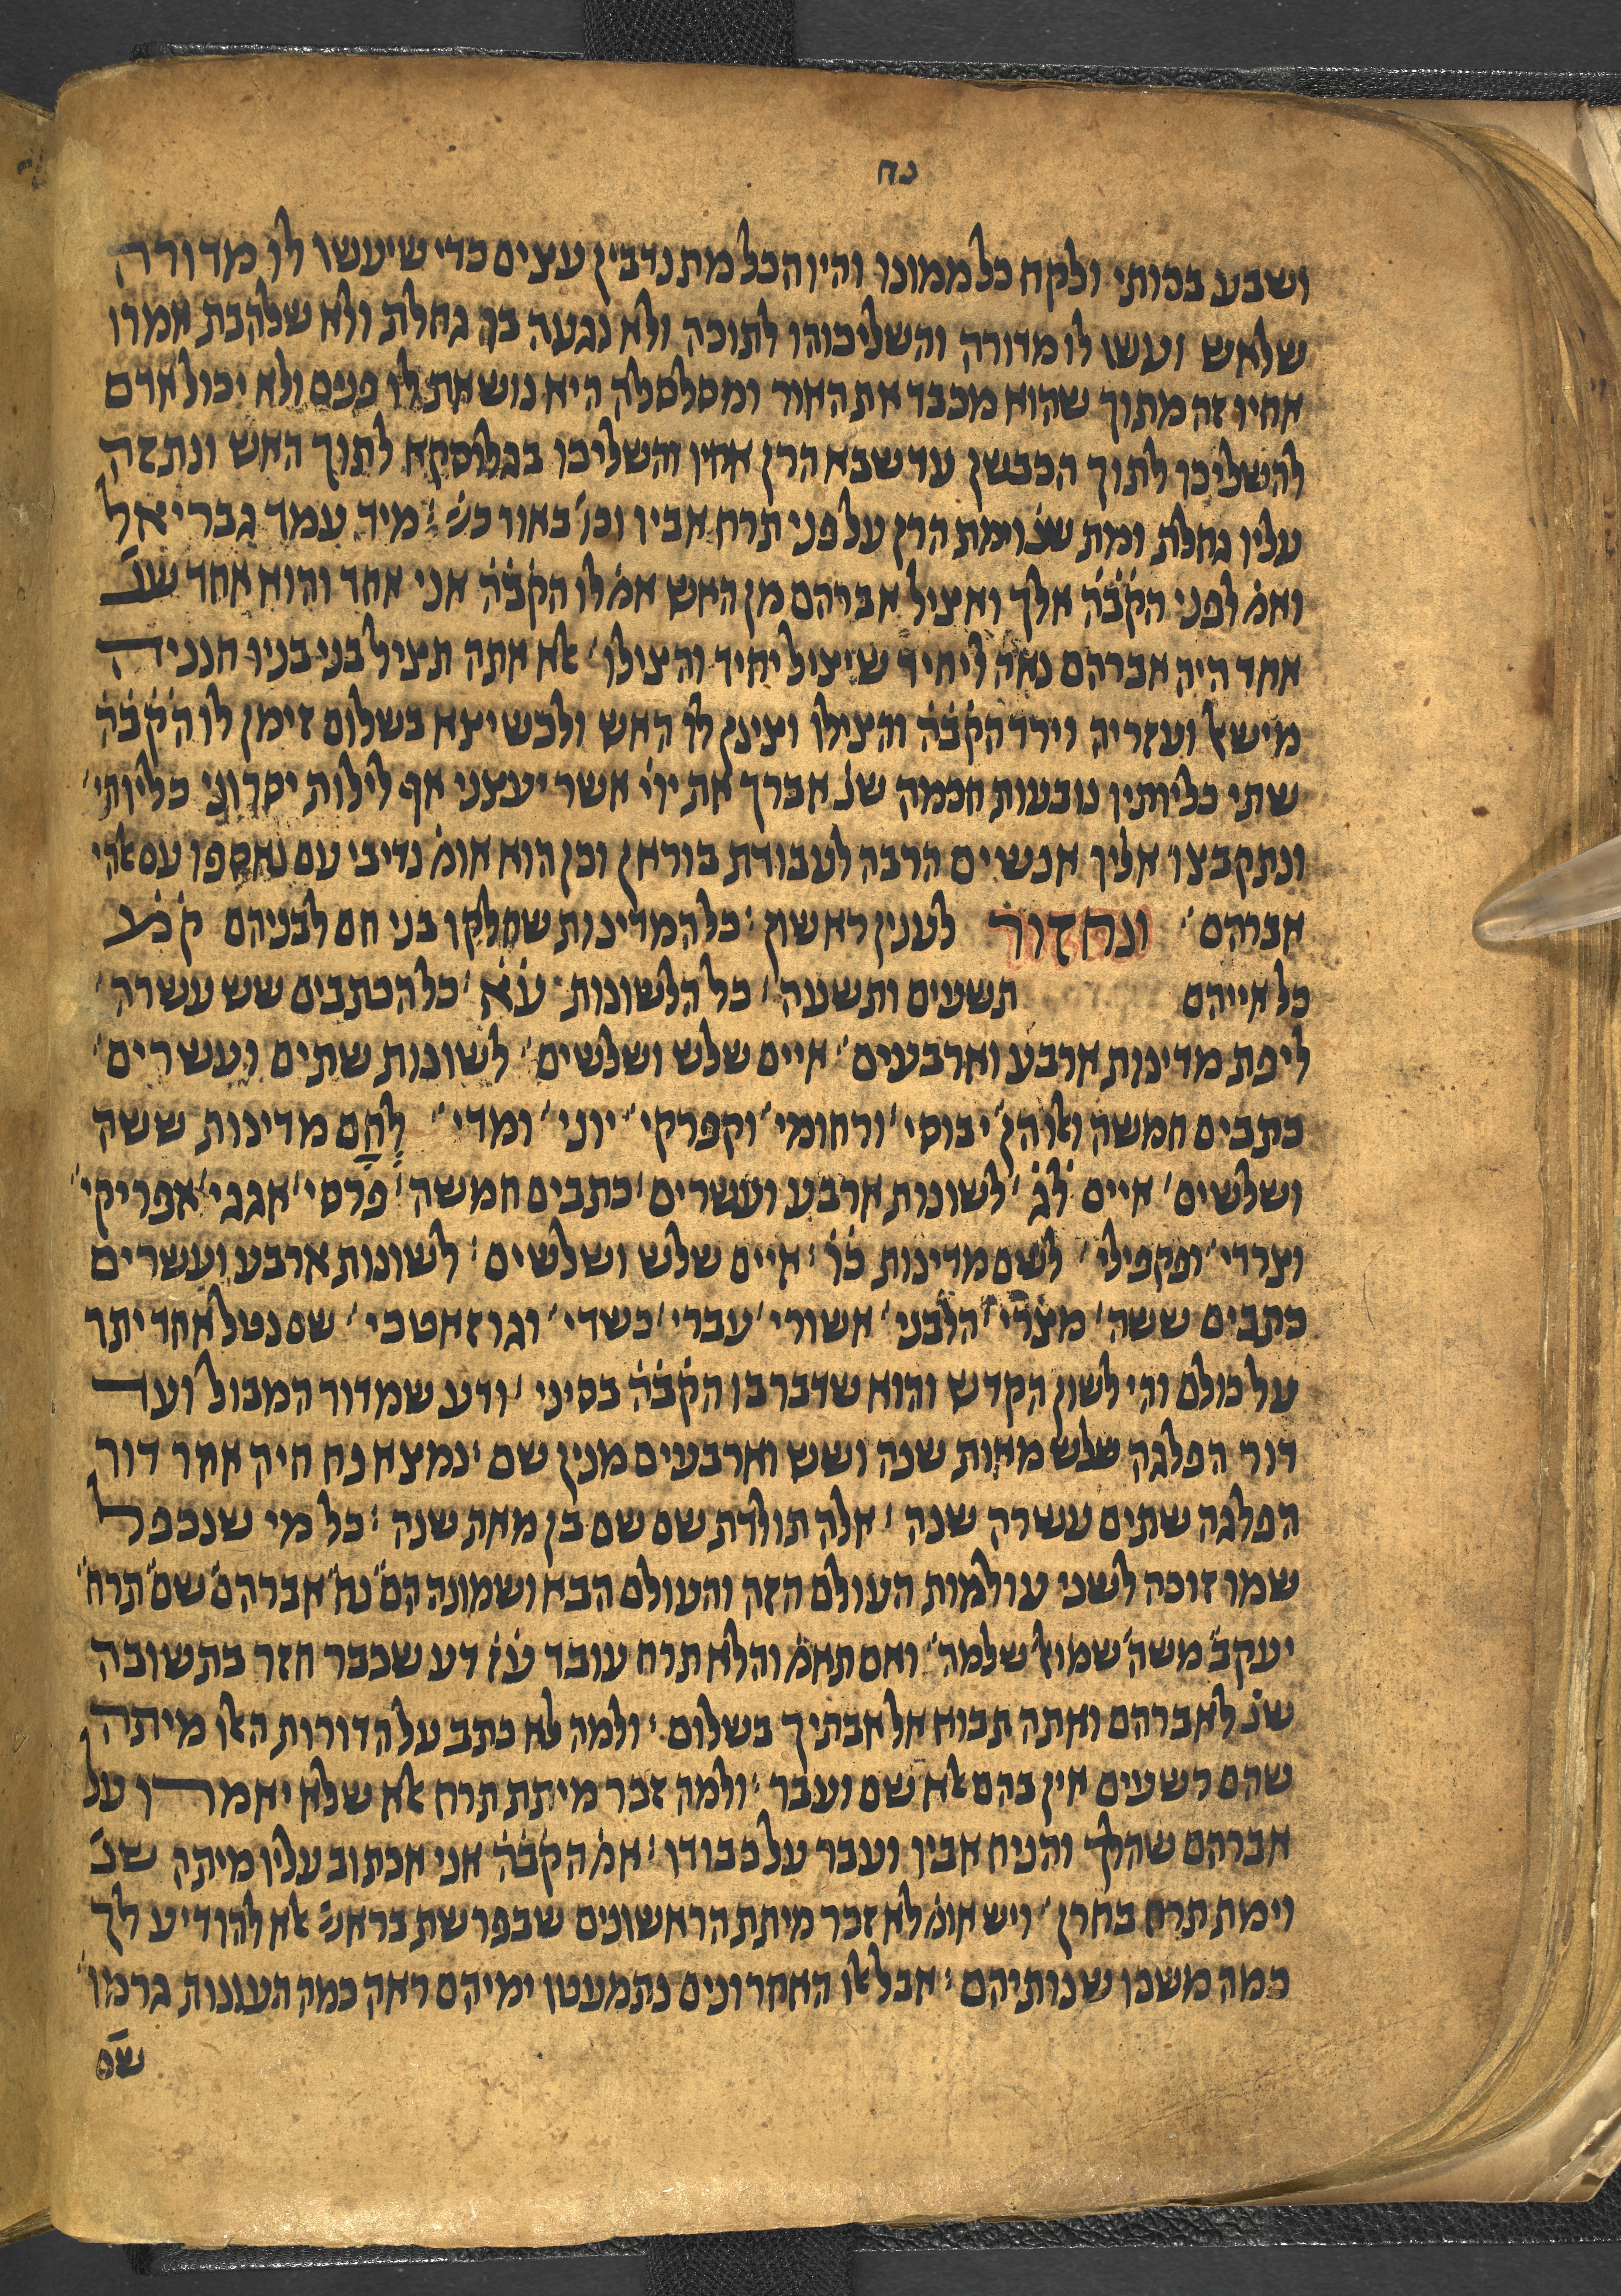 נח
ושבע בכותי ולקח כל ממונו והיו הכל מתנדבין עצים כדי שיעשו לו מדורה
שלאש ועשו לו מדורה והשליכוהו לתוכה ולא נגעה בך גחלת ולא שלהבת אמרו
אחיו זה מתוך שהוא מכבד את האור ומסלסלה היא נושאת לו פנים ולא יכול אדם
להשליכו לתוך הכבשן עד שבא הרן אחיו והשליכו בגלוסקא לתוך האש ונתזה
עליו גחלת ומת שנ׳ וימת הרן על פני תרח אביו וכו׳ באור כש׳ : מיד עמד גבריאל
ואמ׳ לפני הק̇ב̇ה̇ אלך ואציל אברהם מן האש אמ׳ לו הק̇ב̇ה̇ אני אחד והוא אחד שנ׳
אחד היה אברהם נאה ליחיד שיציל יחיד והצילו׳ אלא אתה תציל בני בניו חנניה
מישאל ועזריה וירד הק̇ב̇ה̇ והצילו וצינן לו האש ולכשיצא בשלום זימן לו הק̇ב̇ה̇
שתי כליותיו נובעות חכמה שנ׳ אברך את ייי אשר יעצני אף לילות יסרוני כליותי׳
ונתקבצו אליו אנשים הרבה לעבודת בוראן וכן הוא אומ׳ נדיבי עם נאספו עם אלהי
אברהם׳ ונחזור לענין ראשון : כל המדינות שחלקו בני חם לבניהם ק̇מ̇ע̇
כל אייהם תשעים ותשעה׳ כל הלשונות ע̇א̇׳ כל הכתבים שש עשרה׳
ליפת מדינות ארבע וארבעים׳ איים שלש ושלשים׳ לשונות שתים ועשרים׳
כתבים חמשה ואלו הן׳ יבוסי׳ ורחומי׳ וקפרקי׳ יוני׳ ומדי׳ לחם מדינות ששה
ושלשים׳ איים ל̇ג̇׳ לשונות ארבע ועשרים׳ כתבים חמשה׳ פרסי׳ אגגי׳ אפריקי׳
וצרדי׳ ופקפילי׳ לשם מדינות כ̇ו̇ : איים שלש ושלשים : לשונות ארבע ועשרים
כתבים ששה׳ מצרי׳ הלבני׳ אשורי׳ עברי׳ כשדי׳ וגוזאטכי׳ שם נטל אחד יתר
על כולם והי לשון הקדש והוא שדבר בו הק̇ב̇ה̇ בסיני׳ ודע שמדור המבול ועד
דור הפלגה שלש מאות שנה ושש וארבעים מנין שם׳ נמצא נח חיה אחר דור
הפלגה שתים עשרה שנה : אלה תולדת שם שם בן מאת שנה : כל מי שנכפל
שמו זוכה לשני עולמות העולם הזה והעולם הבא ושמונה הם׳ נח׳ אברהם׳ שם׳ תרח׳
יעקב׳ משה׳ שמואל׳ שלמה׳ ואם תאמ׳ והלא תרח עובד ע̇ז̇ דע שכבר חזר בתשובה
שנ׳ לאברהם ואתה תבוא אל אבתיך בשלום : ולמה לא כתב על הדורות האלו מיתה
שהם רשעים אין בהם אלא שם ועבר׳ ולמה זכר מיתת תרח אלא שלא יאמרו על
אברהם שהלך והניח אביו ועבר על כבודו : אמ׳ הק̇ב̇ה̇ אני אכתוב עליו מיתה שנ׳
וימת תרח בחרן׳ ויש אומ׳ לא זכר מיתת הראשונים שבפרשת בראש׳ אלא להודיע לך
כמה משכו שנותיהם : אבל אלו האחרונים נתמעטו ימיהם ראה כמה העונות גרמו׳
שם